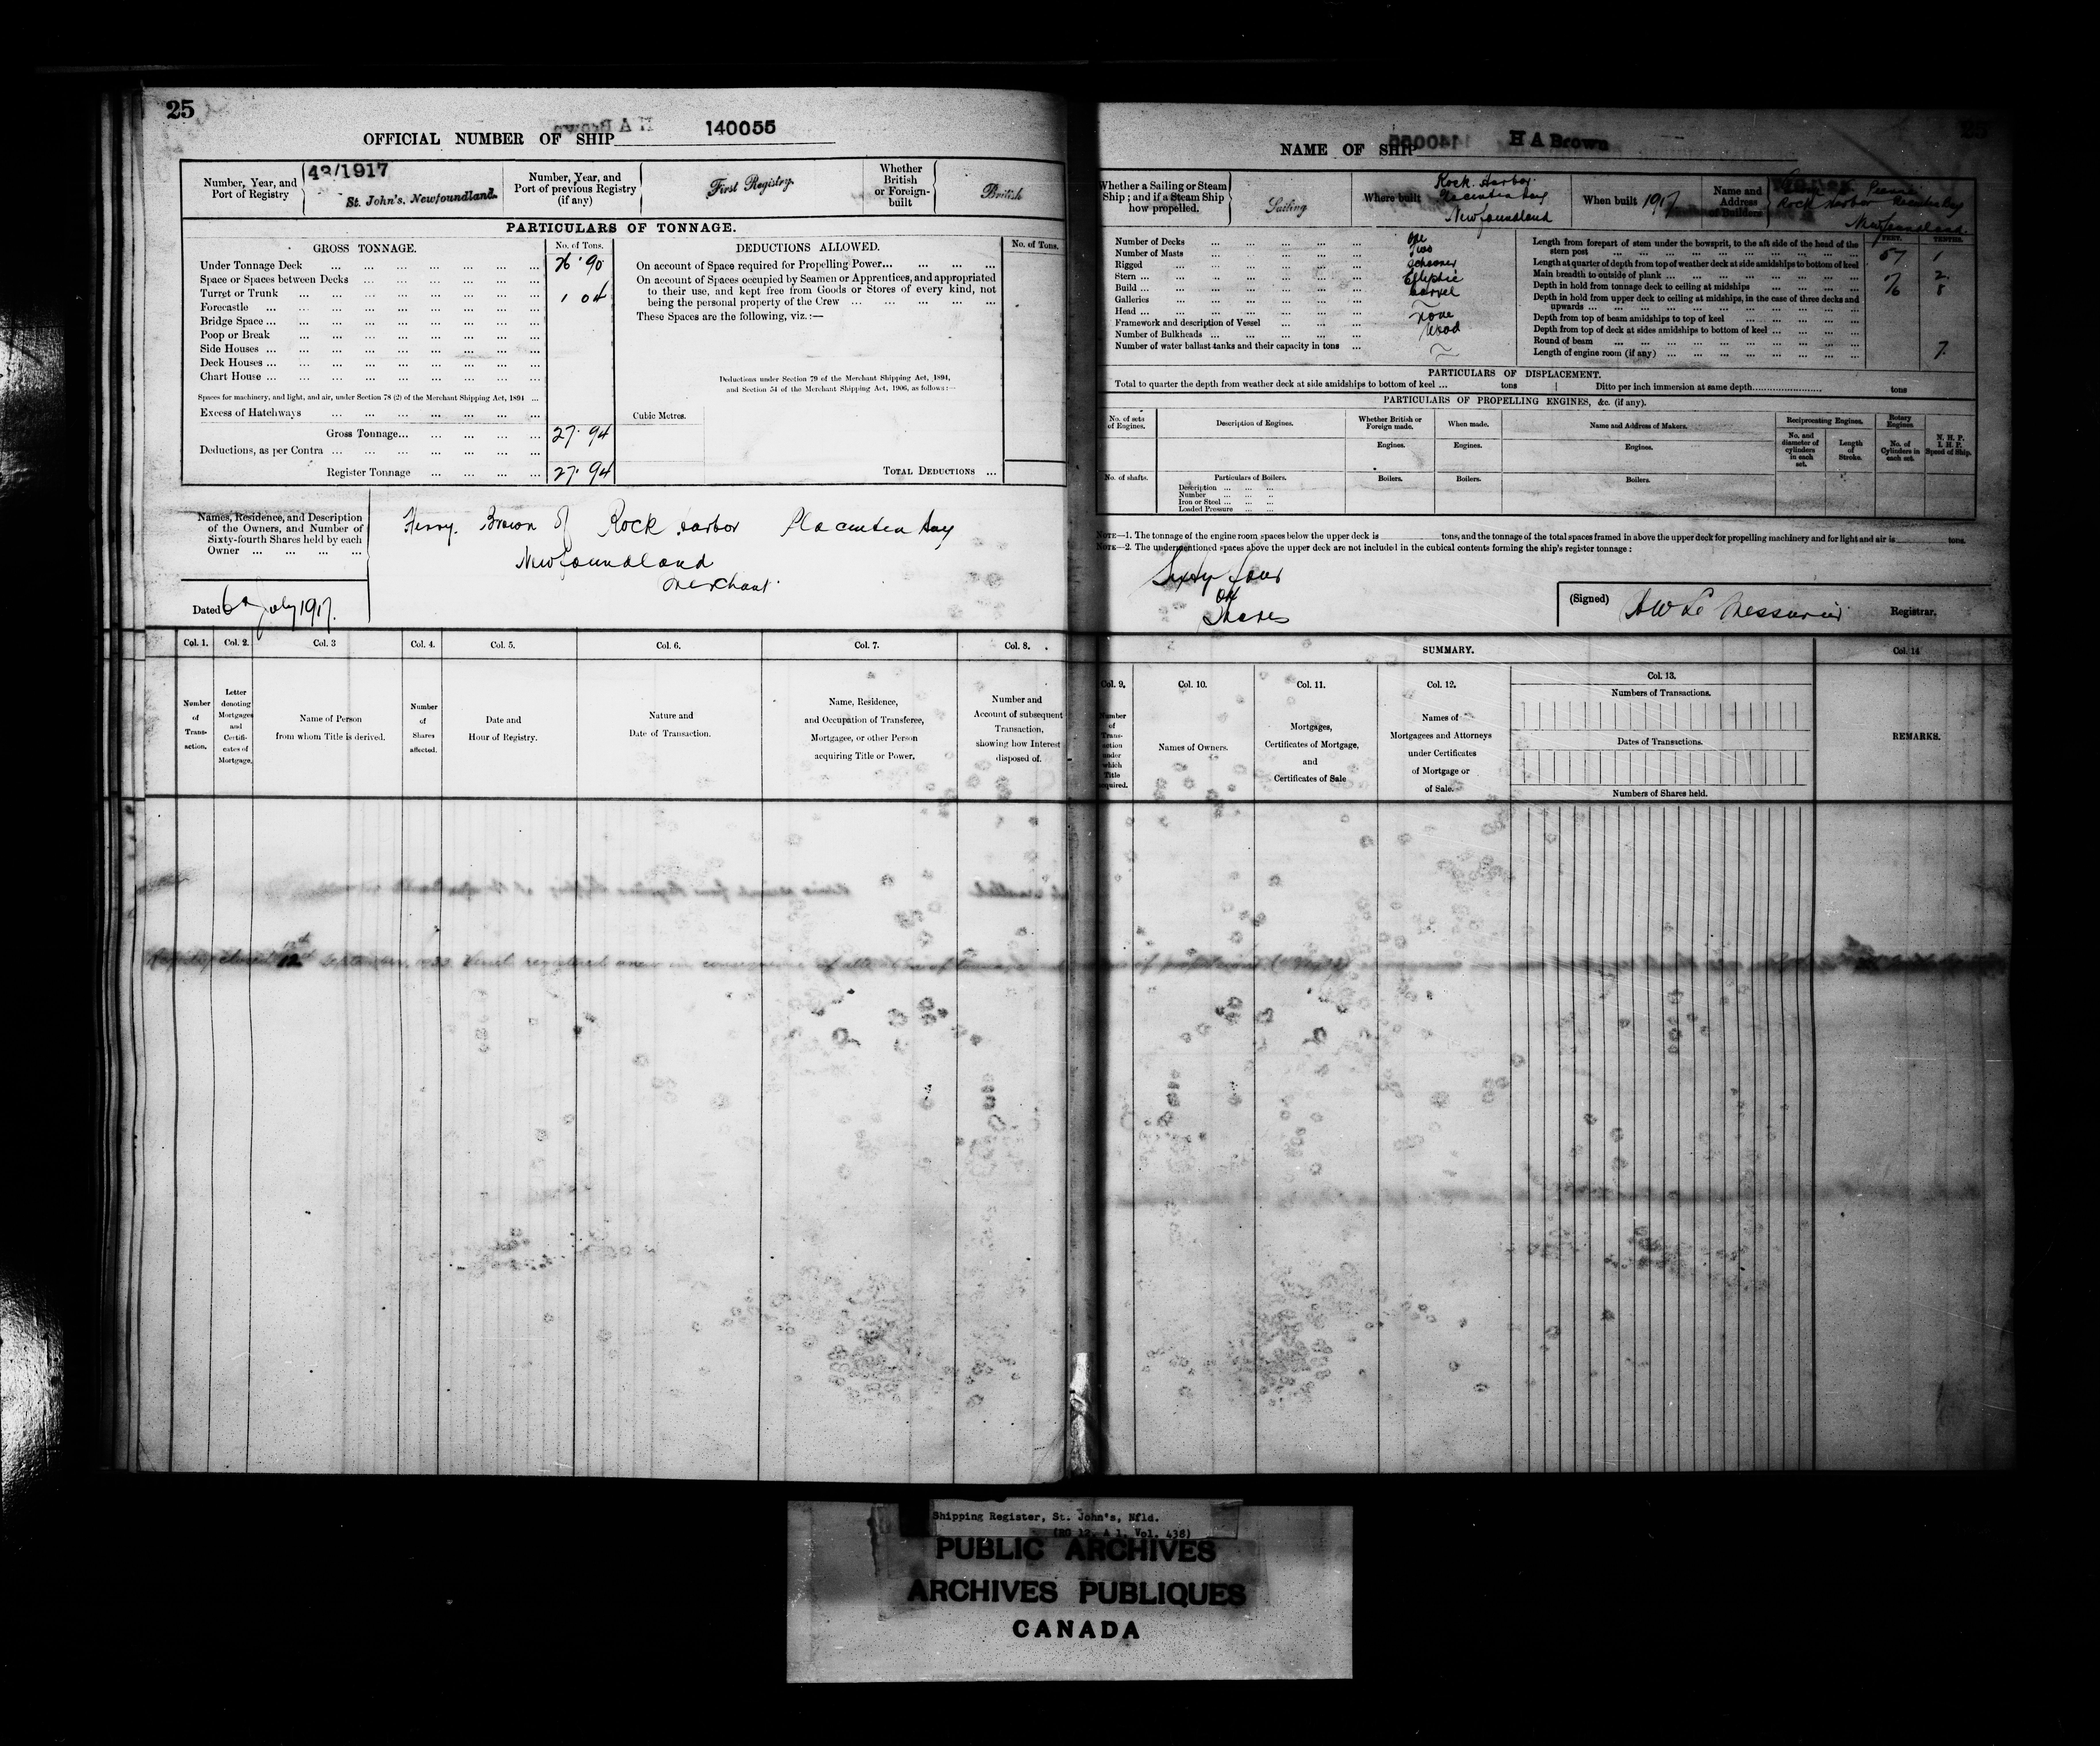 25
OFFICIAL NUMBER OF SHIP 140055
Number, Year, and Port of Registry
43/1917
St. John's, Newfoundland.
Number, Year, and Port of previous Registry (if any)
First Registry.
Whether British or Foreign-built
British
PARTICULARS OF TONNAGE.
GROSS TONNAGE.
No. of Tons.
Under Tonnage Deck ... 26.90
Space or Spaces between Decks ...
Turret or Trunk ... 1 04
Forecastle ...
Bridge Space ...
Poop or Break ...
Side Houses ...
Deck Houses ...
Chart House ...
Spaces for machinery, and light, and air, under Section 78 (2) of the Merchant Shipping Act, 1894 ...
Excess of Hatchways ...
Gross Tonnage... 27.94
Deductions, as per Contra ...
Register Tonnage ... 27.94
DEDUCTIONS ALLOWED.
No. of Tons.
On account of Space required for Propelling Power...
On account of Spaces occupied by Seamen or Apprentices, and appropriated
to their use, and kept free from Goods or Stores of every kind, not
being the personal property of the Crew ...
These Spaces are the following, viz.:—
Deductions under Section 79 of the Merchant Shipping Act, 1894,
and Section 54 of the Merchant Shipping Act, 1906, as follows:—
Cubic Metres.
TOTAL DEDUCTIONS ...
Names, Residence, and Description
of the Owners, and Number of
Sixty-fourth Shares held by each
Owner ...
Henry Brown of Rock Harbor Placentia Bay
Newfoundland
Merchant
Dated 6th July 1917.
Col. 1.
Number of Transaction.
Col. 2.
Letter denoting Mortgages and Certificates of Mortgage.
Col. 3
Name of Person
from whom Title is derived.
Col. 4.
Number of Shares affected.
Col. 5.
Date and
Hour of Registry.
Col. 6.
Nature and
Date of Transaction.
Col. 7.
Name, Residence,
and Occupation of Transferee,
Mortgagee, or other Person
acquiring Title or Power.
Col. 8.
Number and
Account of subsequent
Transaction,
showing how Interest
disposed of.
closed 12th September vessel registered anew in consequence of alteration of tonnage
NAME OF SHIP H A Brown
Whether a Sailing or Steam
Ship; and if a Steam Ship
how propelled.
Sailing
Where built
Rock Harbor
Placentia Bay
Newfoundland
When built 1917
Name and Address of Builders
Rock Harbor Placentia Bay
Newfoundland
Number of Decks ... One
Number of Masts ... Two
Rigged ... Schooner
Stern ... Elliptic
Build ... Carvel
Galleries ...
Head ... None
Framework and description of Vessel ... Wood
Number of Bulkheads ...
Number of water ballast tanks and their capacity in tons ...
FEET. TENTHS.
Length from forepart of stem under the bowsprit, to the aft side of the head of the
stern post ... 57 1
Length at quarter of depth from top of weather deck at side amidships to bottom of keel
Main breadth to outside of plank ... 2
Depth in hold from tonnage deck to ceiling at midships ... 8
Depth in hold from upper deck to ceiling at midships, in the case of three decks and
upwards ...
Depth from top of beam amidships to top of keel ...
Depth from top of deck at sides amidships to bottom of keel ...
Round of beam ...
Length of engine room (if any) ...
7
PARTICULARS OF DISPLACEMENT.
Total to quarter the depth from weather deck at side amidships to bottom of keel ... tons
Ditto per inch immersion at same depth... tons
PARTICULARS OF PROPELLING ENGINES, &c. (if any).
No. of sets of Engines.
Description of Engines.
Whether British or Foreign made.
When made.
Name and Address of Makers.
Reciprocating Engines.
Rotary Engines.
N. H. P.
I. H. P.
Speed of Ship.
Engines.
Engines.
Engines.
No. and diameter of cylinders in each set.
Length of Stroke.
No. of Cylinders in each set.
No. of shafts.
Particulars of Boilers.
Boilers.
Boilers.
Boilers.
Description ...
Number ...
Iron or Steel ...
Loaded Pressure ...
NOTE—1. The tonnage of the engine room spaces below the upper deck is tons, and the tonnage of the total spaces framed in above the upper deck for propelling machinery and for light and air is tons.
NOTE—2. The undermentioned spaces above the upper deck are not included in the cubical contents forming the ship's register tonnage:
Sixty four
64
Shares
(Signed) H W Le Messurier Registrar.
SUMMARY.
Col. 9.
Number of Transaction under which Title acquired.
Col. 10.
Names of Owners.
Col. 11.
Mortgages,
Certificates of Mortgage,
and
Certificates of Sale
Col. 12.
Names of
Mortgagees and Attorneys
under Certificates
of Mortgage or
of Sale.
Col. 13.
Numbers of Transactions.
Dates of Transactions.
Numbers of Shares held.
Col. 14
REMARKS.
Shipping Register, St. John's, Nfld.
(RG 12, A 1, Vol. 438)
PUBLIC ARCHIVES
ARCHIVES PUBLIQUES
CANADA